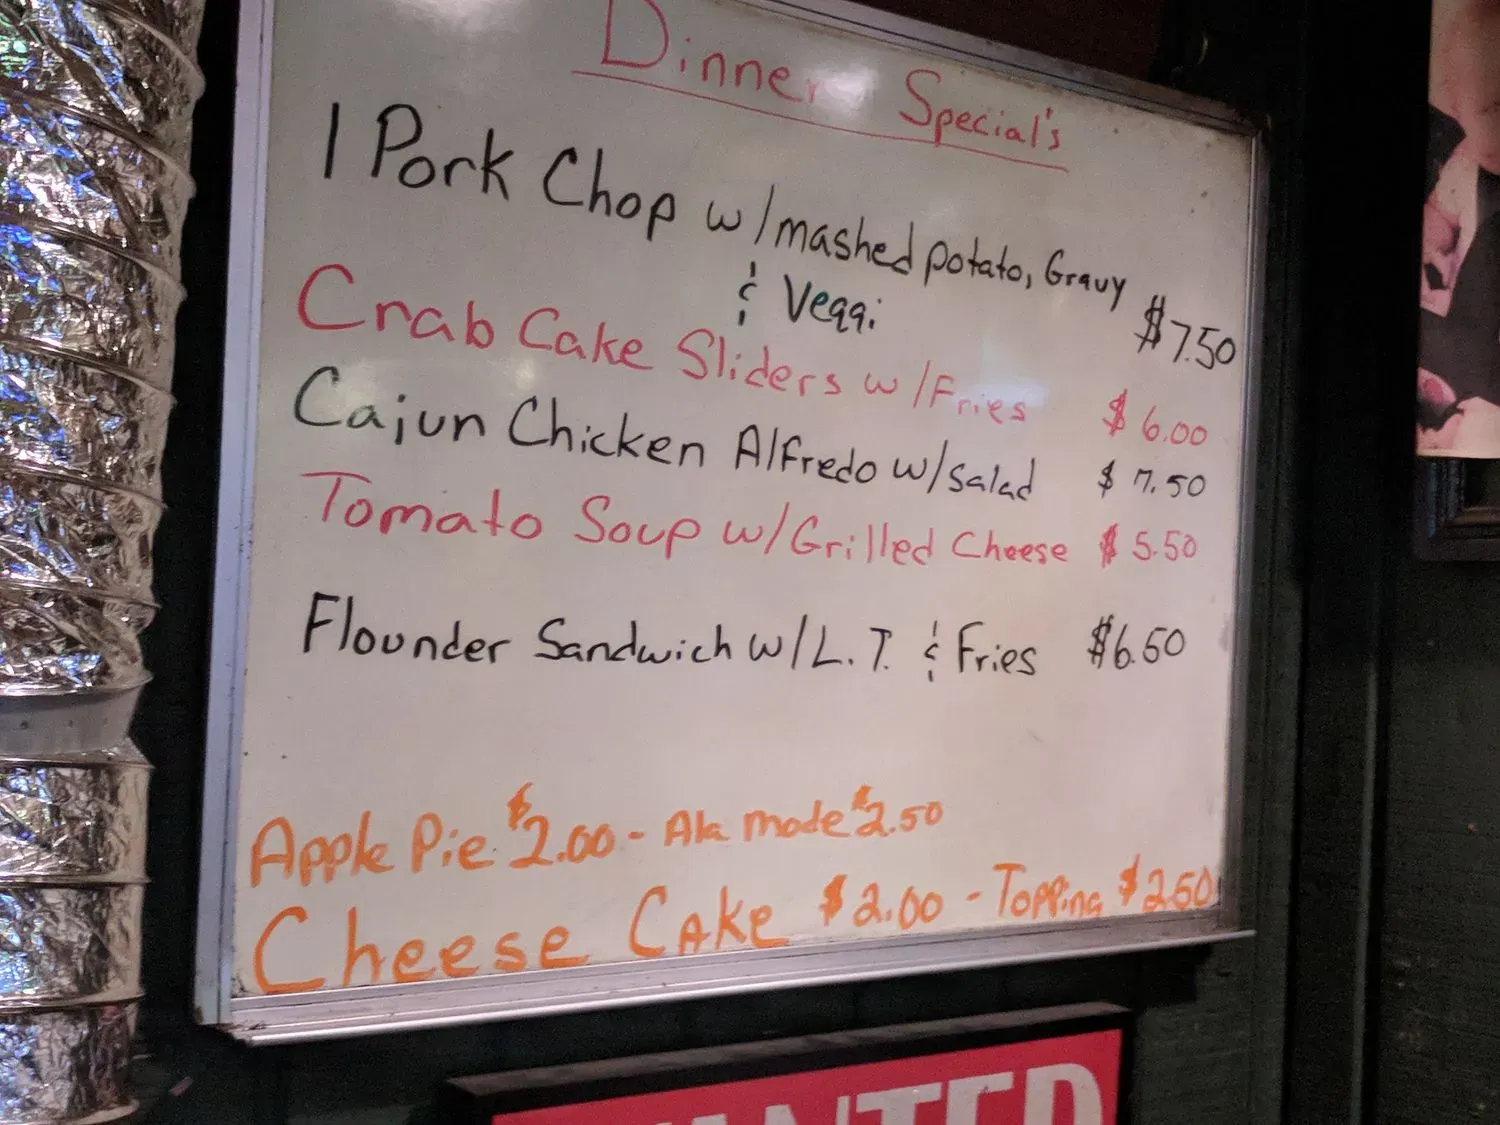 Dinner Special's
1 Pork Chop w/mashed potato, Gravy
& Veggi $7.50
Crab Cake Sliders w/Fries $6.00
Cajun Chicken Alfredo w/Salad $7.50
Tomato Soup w/Grilled Cheese $5.50
Flounder Sandwich w/L.T. & Fries $6.50
Apple Pie $2.00 - Ala mode $2.50
Cheese Cake $2.00 - Topping $2.50
WANTED